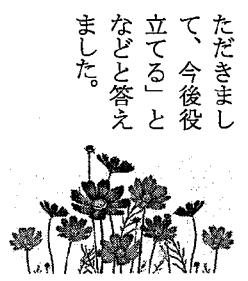 ただきまし
て、今後役
立てる」と
などと答え
ました。